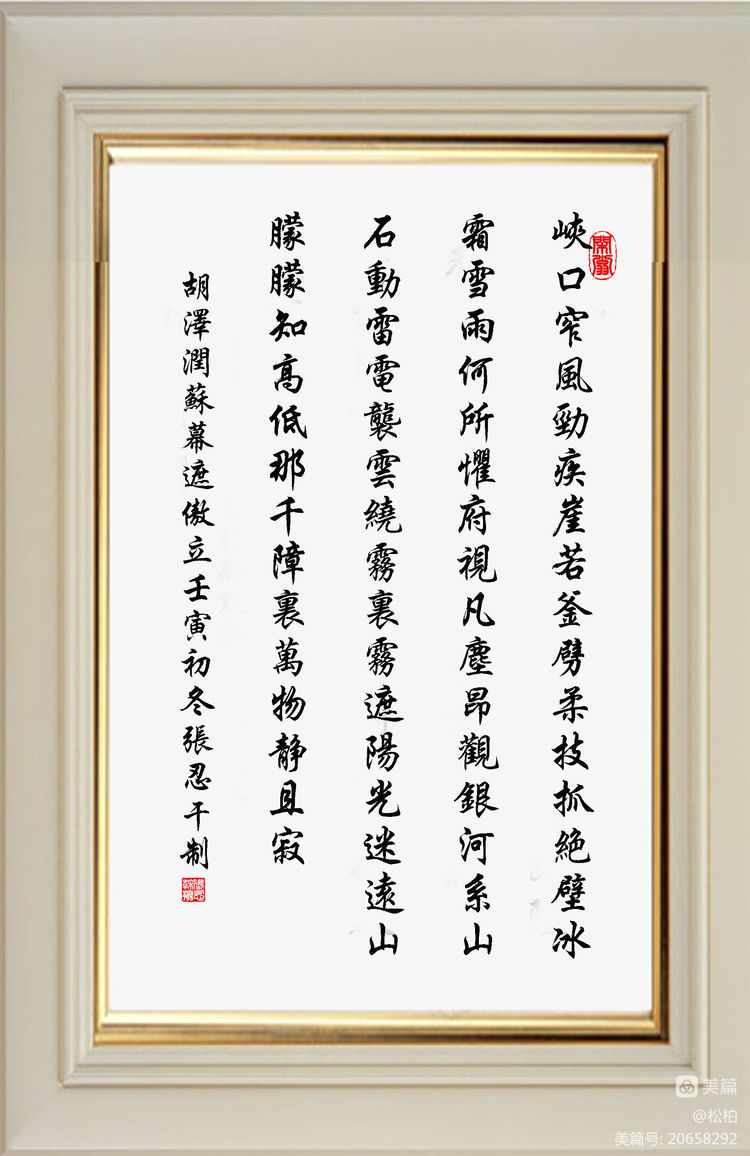 峽口窄風勁疾崖若釜劈柔技抓絕壁冰
霜雪雨何所懼府視凡塵昂觀銀河系山
石動雷電襲雲繞霧裏霧遮陽光迷遠山
朦朦知高低那千障裏萬物靜且寂
胡澤潤蘇幕遮傲立壬寅初冬張忍干制
美篇
@松柏
美篇号: 20658292